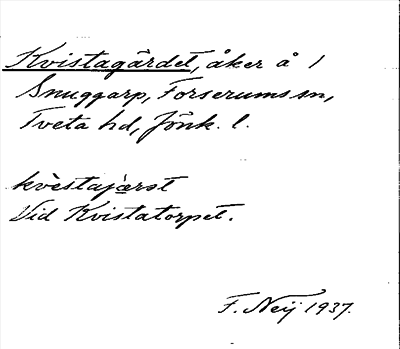 Kvistagärdet, åker å 1
Snuggarp, Forserums sn,
Tveta hd, Jönk. l.
kvèstajærst
Vid Kvistatorpet.
F. Neij 1937.